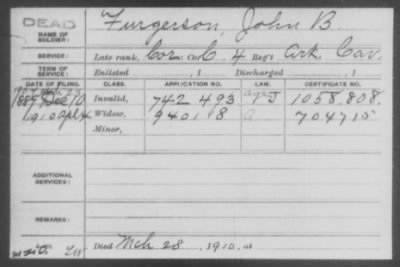 DEAD
NAME OF SOLDIER: Furgerson, John B.
SERVICE: Late rank, Cor Co. C, 4 Reg't Ark Cav.
TERM OF SERVICE: Enlisted , 1 Discharged , 1
DATE OF FILING. CLASS. APPLICATION NO. LAW. CERTIFICATE NO.
1889 Dec 10 Invalid, 742 493 J 1058.808.
1910 Apl 4 Widow, 940118 704715
Minor,
ADDITIONAL SERVICES:
REMARKS:
Died Mch 28, 1910, at